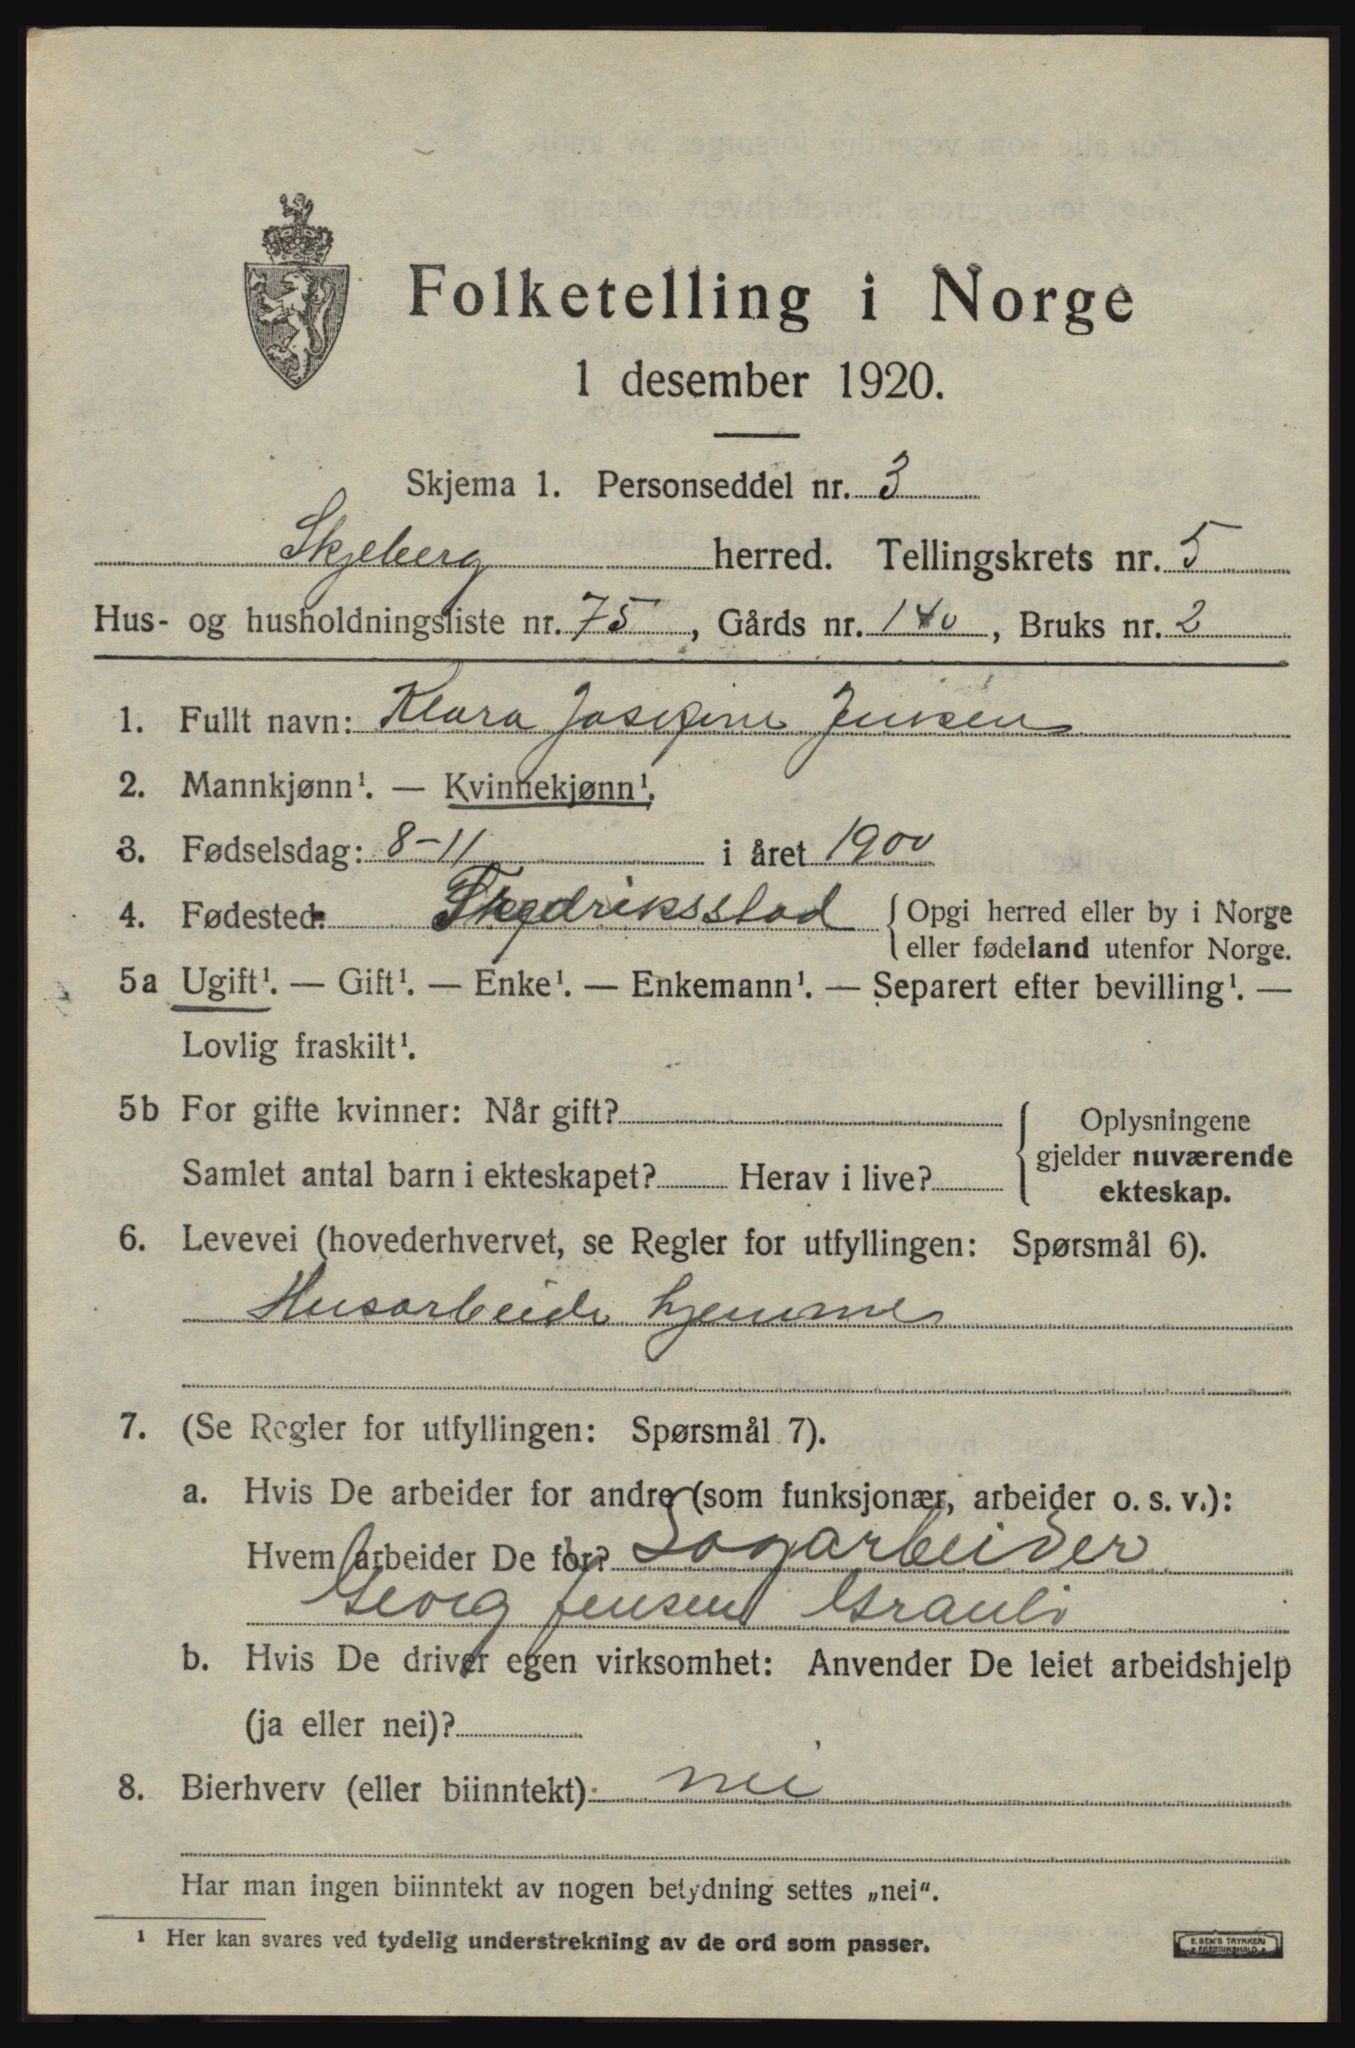 Folketelling i Norge
1 desember 1920.
Skjema 1. Personseddel nr. 3
Skjeberg herred. Tellingskrets nr. 5
Hus- og husholdningsliste nr. 75, Gårds nr. 140, Bruks nr. 2
1. Fullt navn: Klara Josefine Jensen
2. Mannkjønn¹. — Kvinnekjønn¹.
3. Fødselsdag: 8-11 i året 1900
4. Fødested: Fredriksstad { Opgi herred eller by i Norge
eller fødeland utenfor Norge.
5a Ugift¹. — Gift¹. — Enke¹. — Enkemann¹. — Separert efter bevilling¹. —
Lovlig fraskilt¹.
5b For gifte kvinner: Når gift?
Samlet antal barn i ekteskapet? Herav i live?
{ Oplysningene
gjelder nuværende
ekteskap.
6. Levevei (hovederhvervet, se Regler for utfyllingen: Spørsmål 6).
Husarbeide hjemme
7. (Se Regler for utfyllingen: Spørsmål 7).
a. Hvis De arbeider for andre (som funksjonær, arbeider o. s. v.):
Hvem arbeider De for? Sagarbeider
Georg Jensen
b. Hvis De driver egen virksomhet: Anvender De leiet arbeidshjelp
(ja eller nei)?
8. Bierhverv (eller biinntekt) nei
Har man ingen biinntekt av nogen betydning settes „nei“.
¹ Her kan svares ved tydelig understrekning av de ord som passer.
E. SEM'S TRYKKERI
FREDRIKSHALD